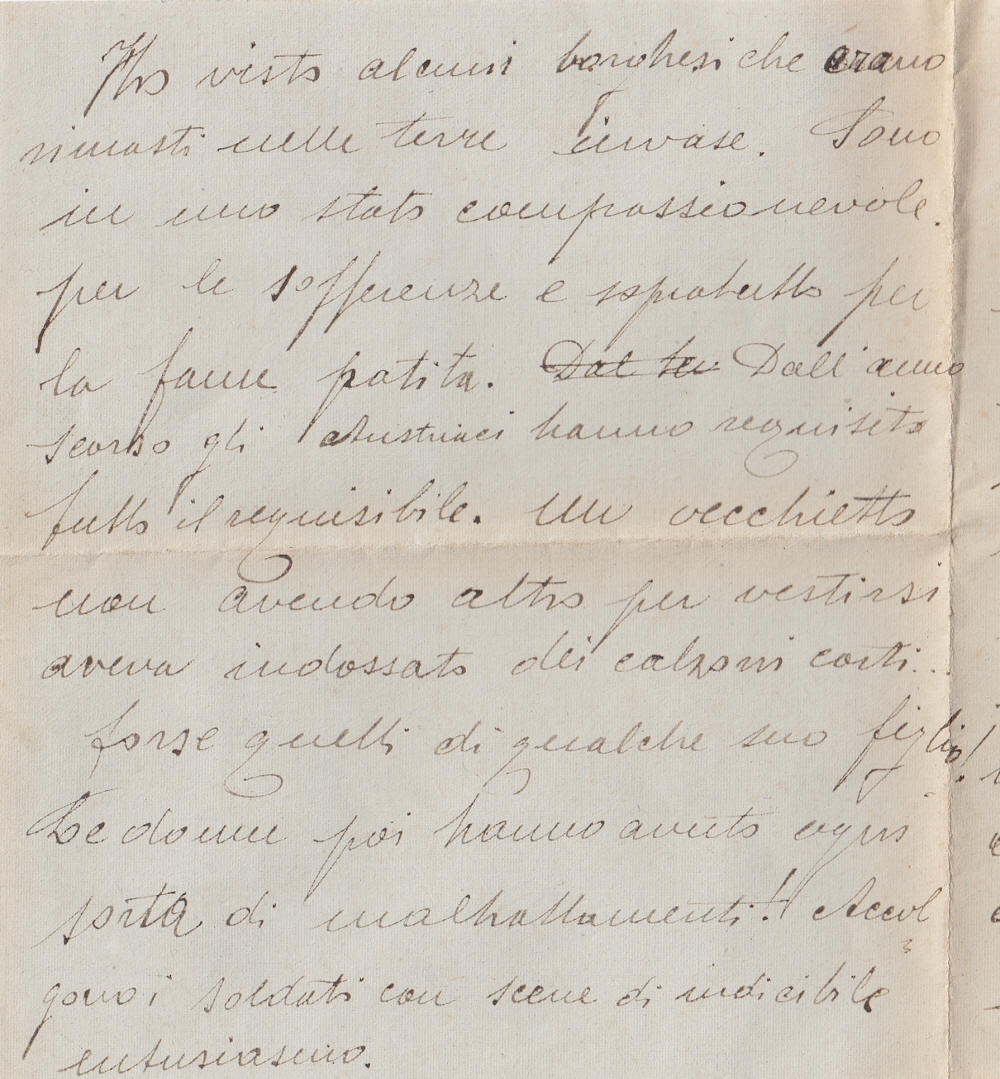 Ho visto alcuni borghesi che erano
rimasti nelle terre invase. Sono
in uno stato compassionevole.
per le sofferenze e sopratutto per
la fame patita. Dal Dall'anno
scorso gli Austriaci hanno requisito
tutto il requisibile. Un vecchietto
non avendo altro per vestirsi
aveva indossato dei calzoni corti...
forse quelli di qualche suo figlio!
Le donne poi hanno avuto ogni
sorta di maltrattamenti! Accol
gono i soldati con scene di indicibile
entusiasmo.